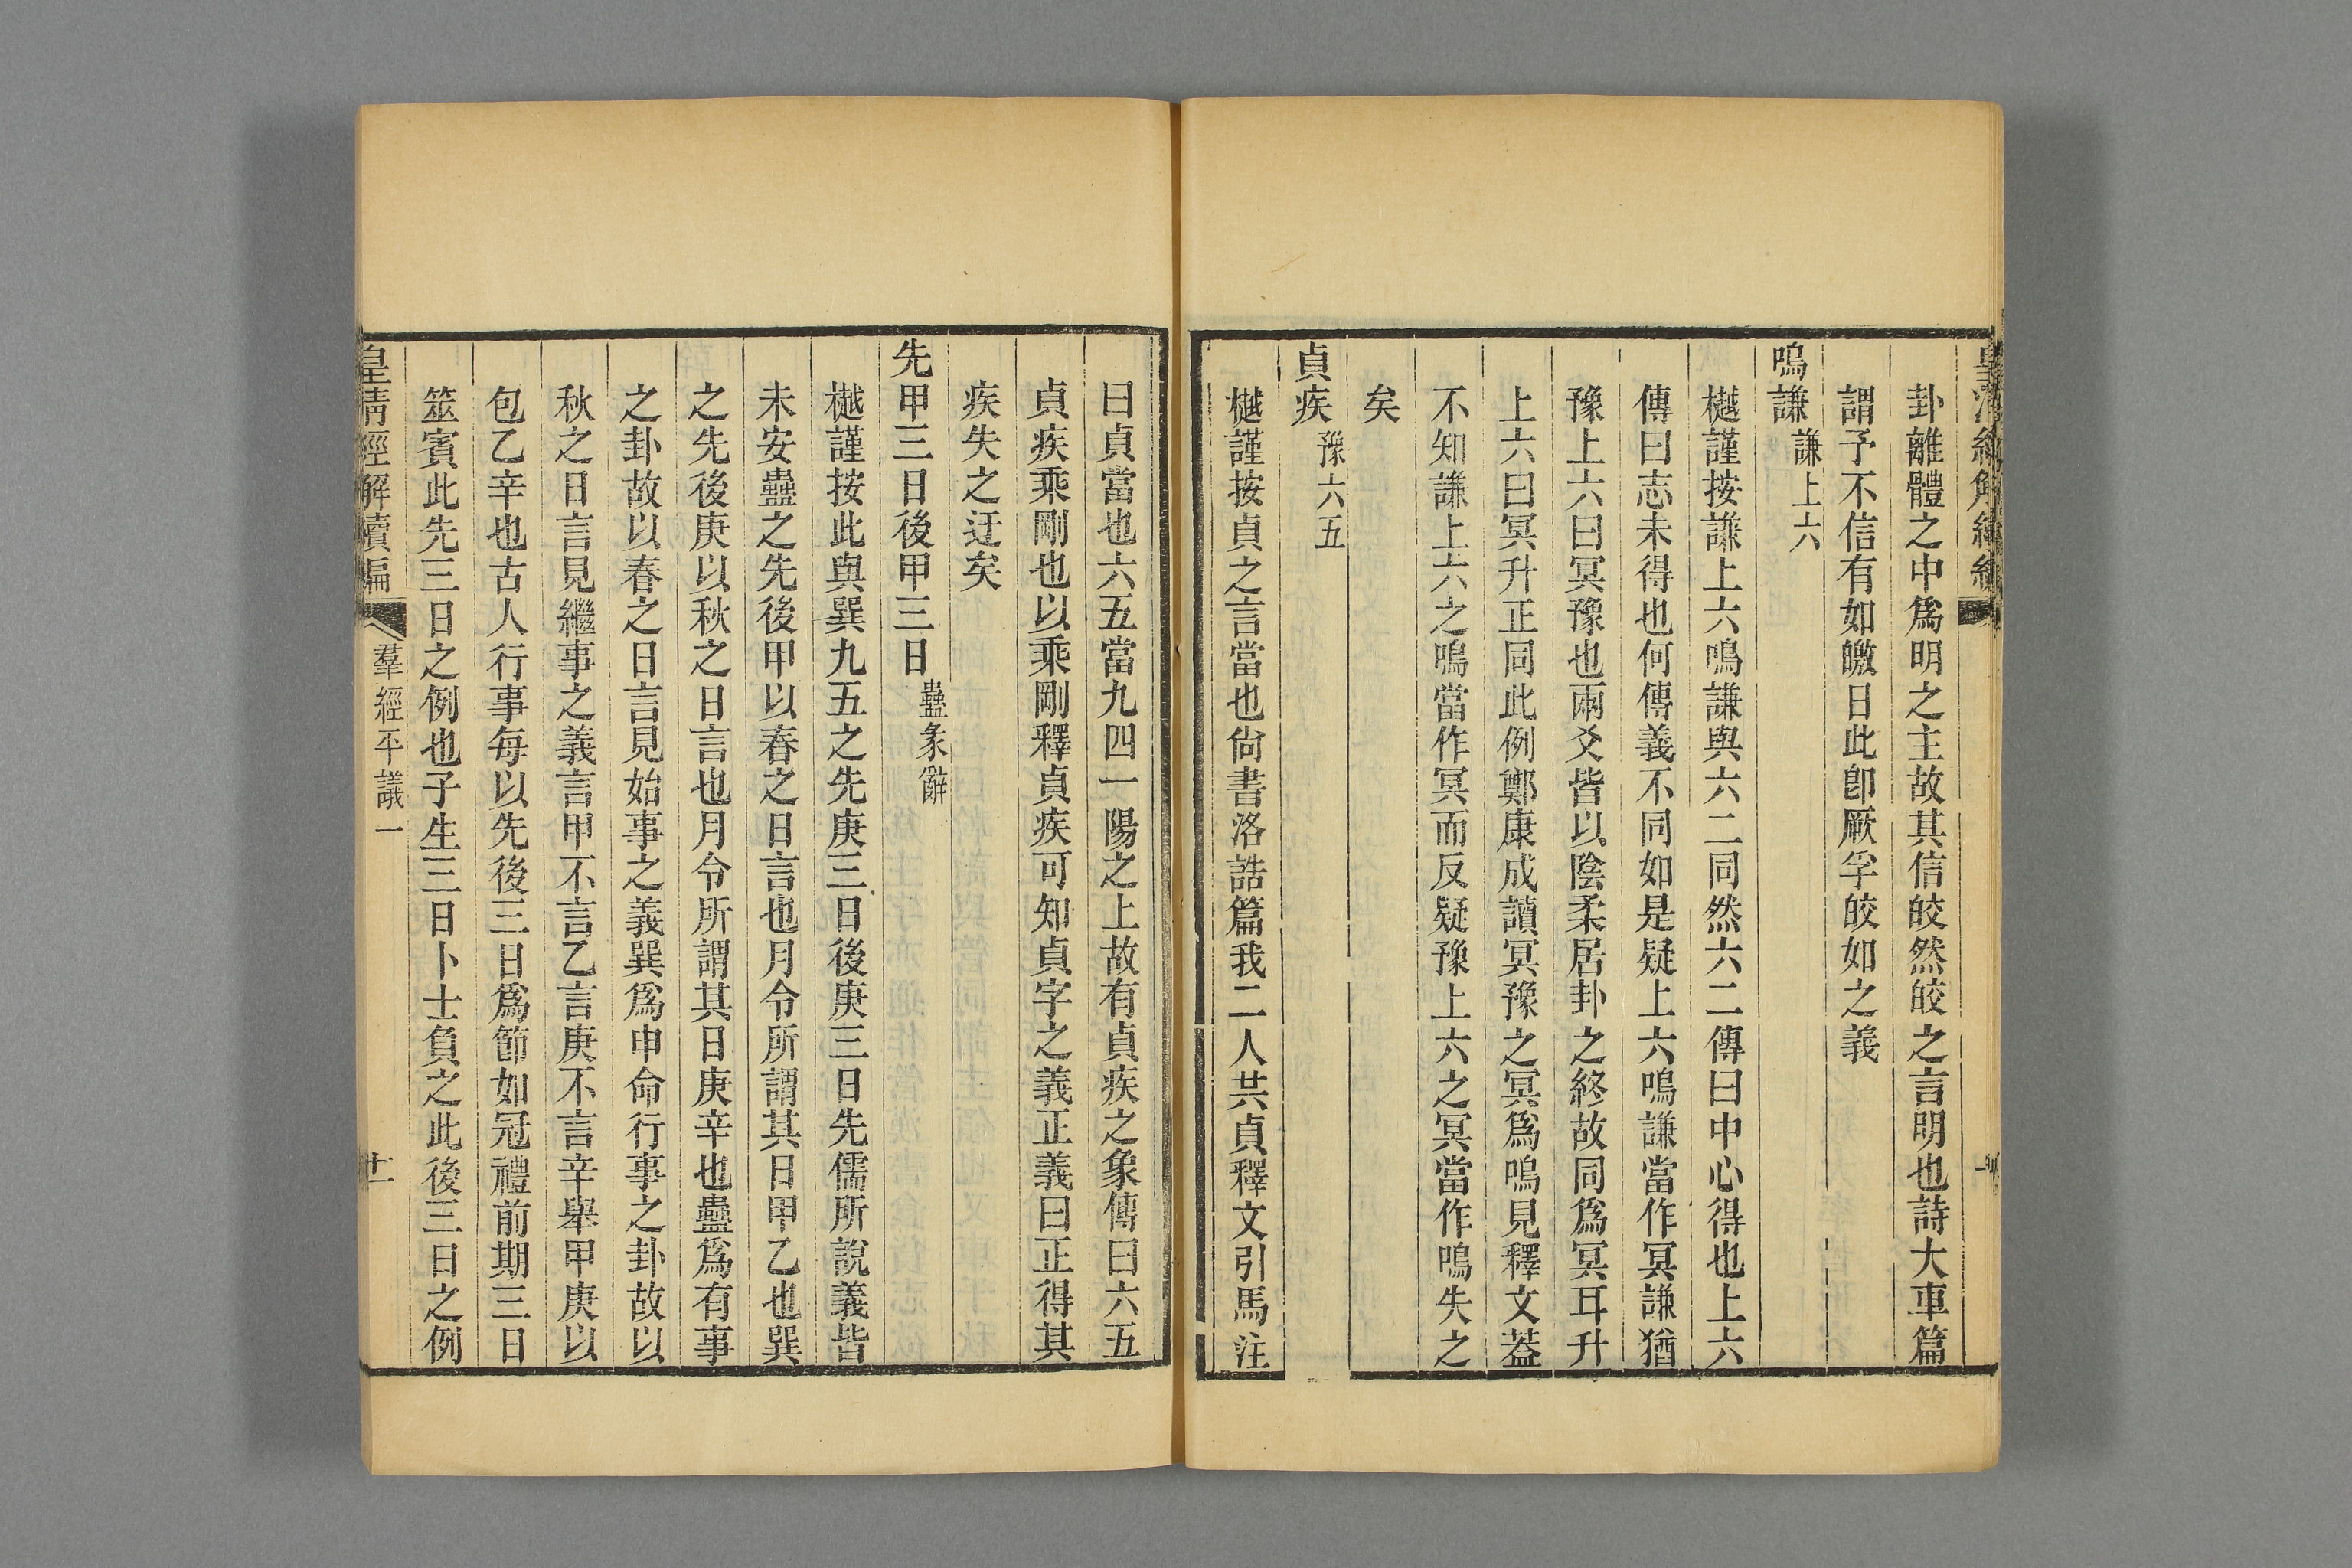 卦離體之中爲明之主故其信皎然皎之言明也詩大車篇
謂予不信有如皦日此卽厥孚皎如之義
鳴謙謙上六
樾謹按謙上六鳴謙與六二同然六二傳曰中心得也上六
傳曰志未得也何傳義不同如是疑上六鳴謙當作冥謙猶
豫上六曰冥豫也兩爻皆以陰柔居卦之終故同爲冥耳升
上六曰冥升正同此例鄭康成讀冥豫之冥爲鳴見釋文葢
不知謙上六之鳴當作冥而反疑豫上六之冥當作鳴失之
矣
貞疾豫六五
樾謹按貞之言當也尙書洛誥篇我二人共貞釋文引馬注
曰貞當也六五當九四一陽之上故有貞疾之象傳曰六五
貞疾乘剛也以乘剛釋貞疾可知貞字之義正義曰正得其
疾失之迂矣
先甲三日後甲三日蠱彖辭
樾謹按此與巽九五之先庚三日後庚三日先儒所說義皆
未安蠱之先後甲以春之日言也月令所謂其日甲乙也巽
之先後庚以秋之日言也月令所謂其日庚辛也蠱爲有事
之卦故以春之日言見始事之義巽爲申命行事之卦故以
秋之日言見繼事之義言甲不言乙言庚不言辛舉甲庚以
包乙辛也古人行事每以先後三日爲節如冠禮前期三日
筮賓此先三日之例也子生三日卜士負之此後三日之例
皇清經解續編
羣經平議一
十一